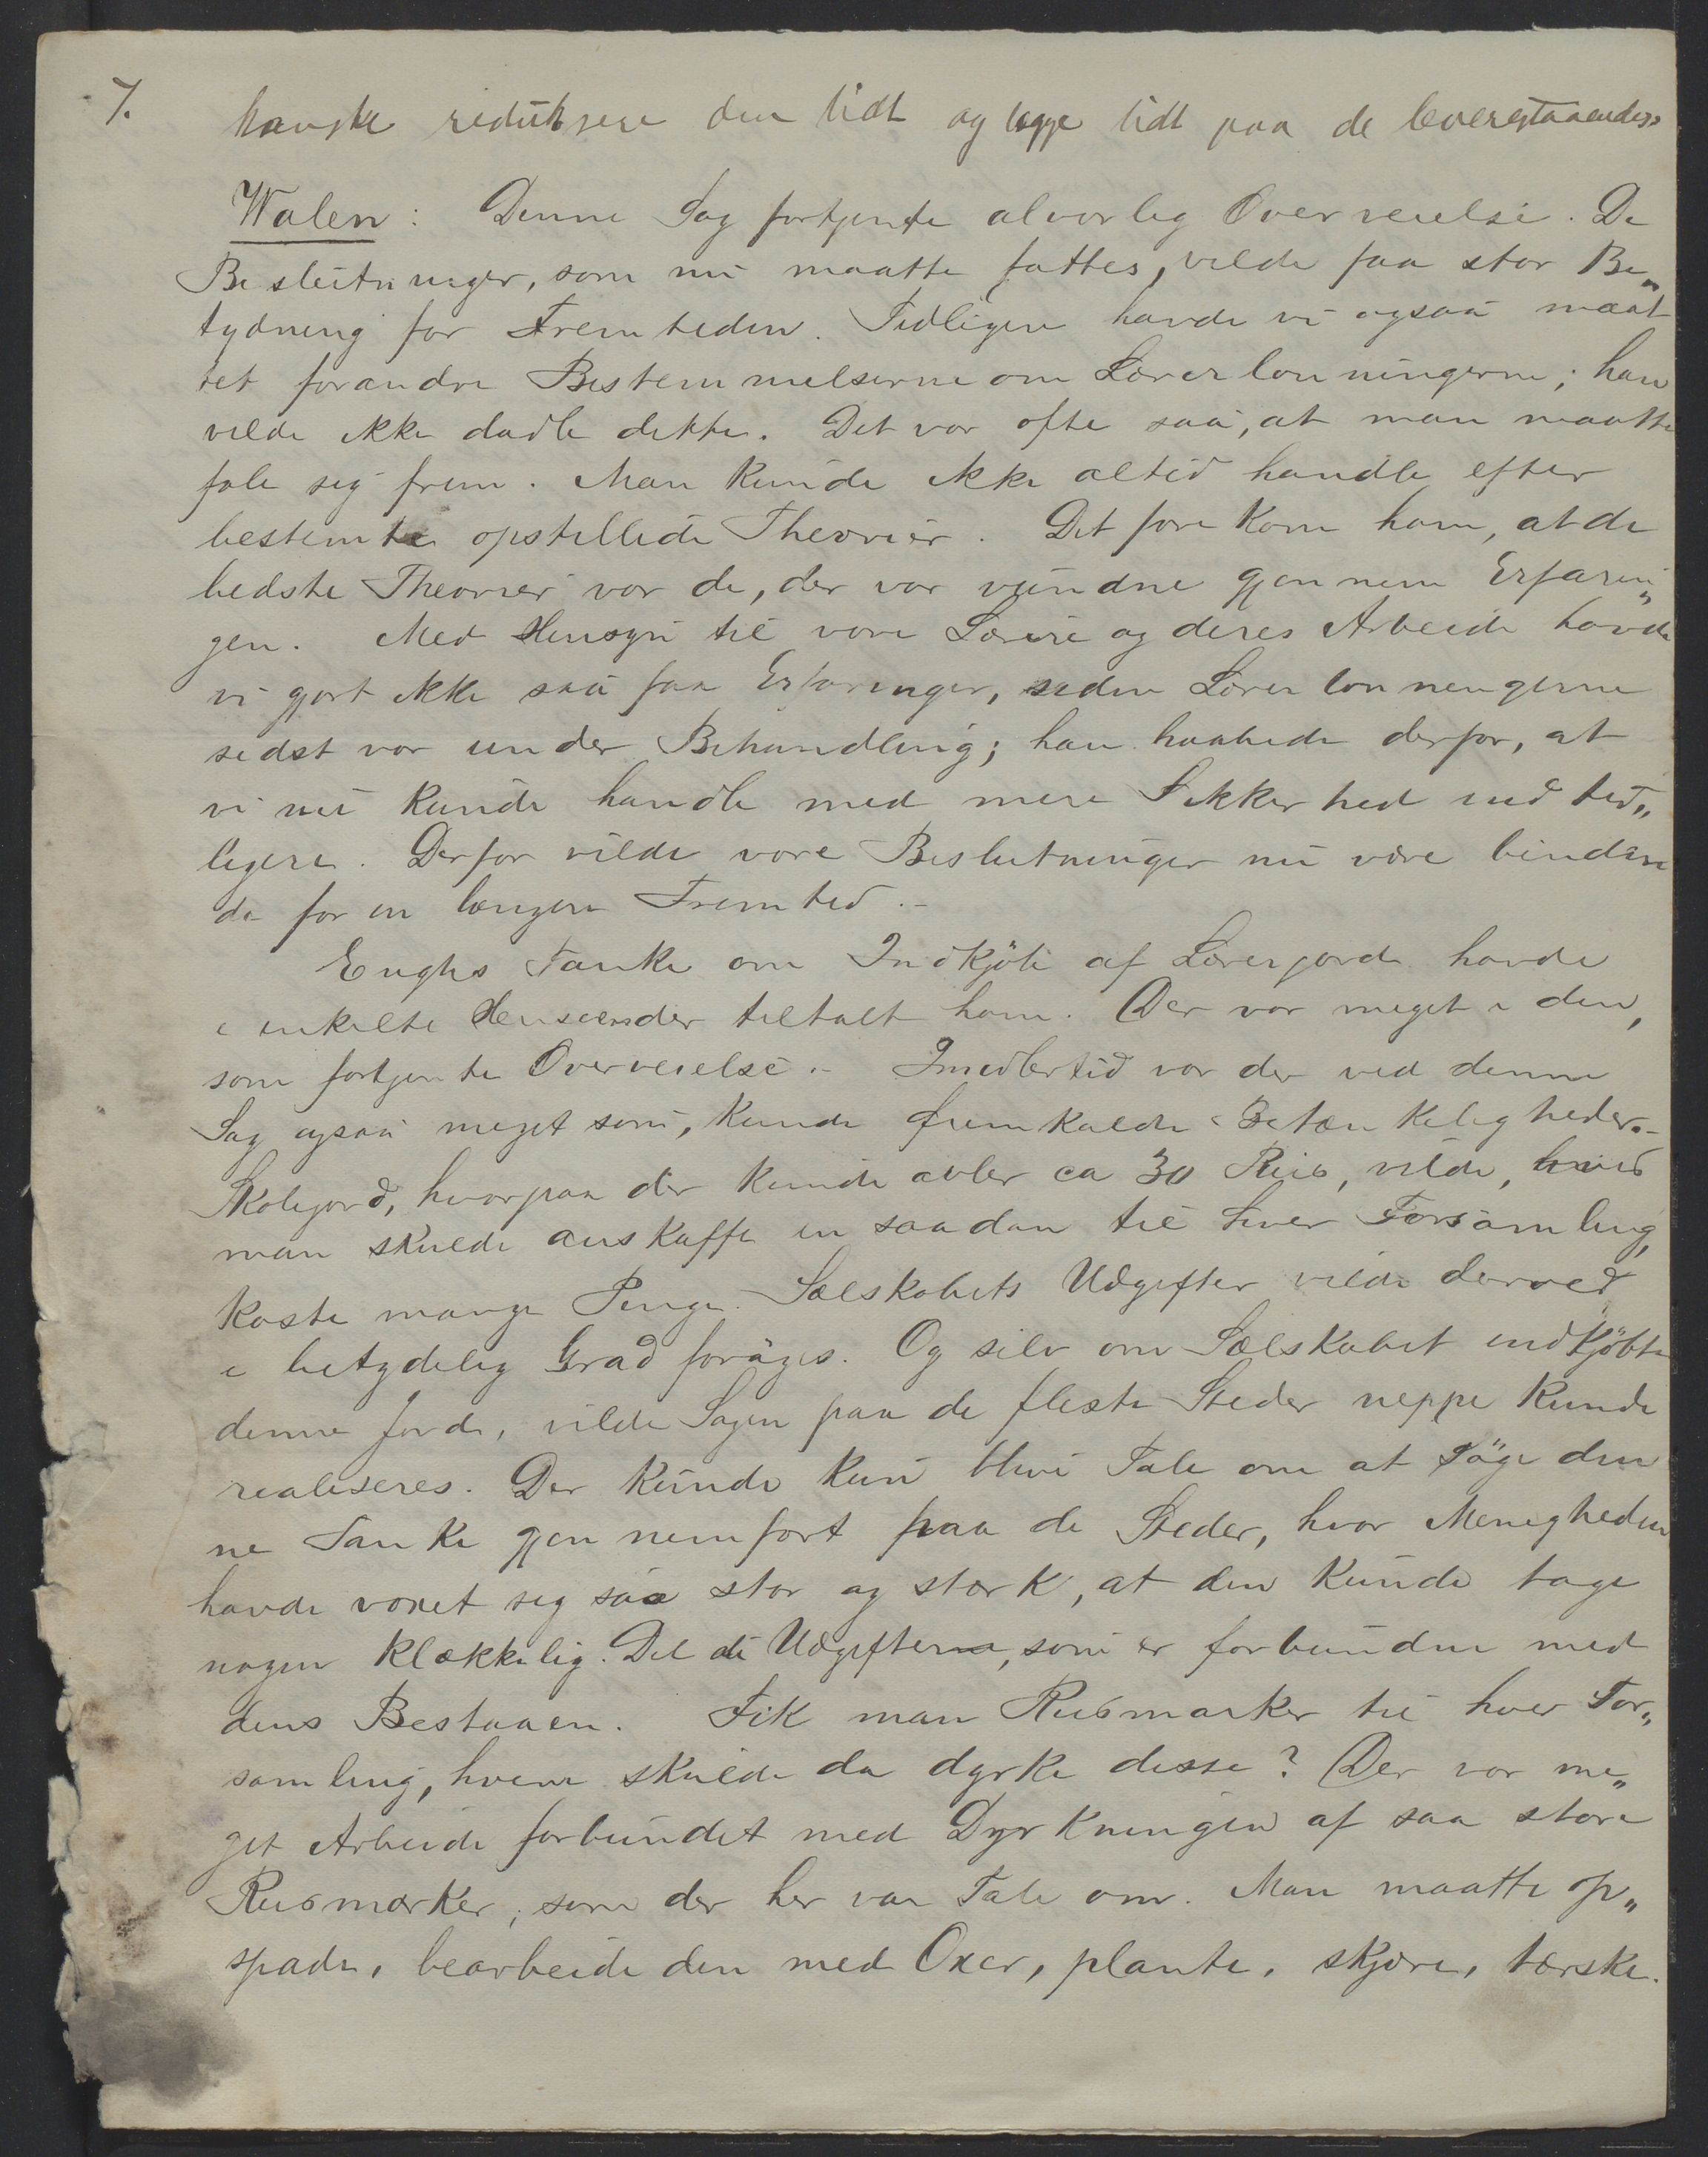 7.
kanske reduksere den lidt og lægge lidt paa de laverestaaendes
Walen: Denne Sag fortjente alvorlig Overveielse. De
Beslutninger, som nu maatte fattes, vilde faa stor Be„
tydning for Fremtiden. Tidligere havde vi ogsaa maat
tet forandre Bestemmelserne om Lærerlønningerne; han
vilde ikke dadle dette. Det var ofte saa, at man maatte
føle sig frem. Man kunde ikke altid handle efter
bestemte opstillede Theorier. Det forekom ham, at de
bedste Theorier var de, der var vundne gjennem Erfarin„
gen. Med Hensyn til vore Lærere og deres Arbeide havde
vi gjort ikke saa faa Erfaringer, siden Lærerlønningerne
sidst var under Behandling; han haabede derfor, at
vi nu kunde handle med mere Sikkerhed end tid„
ligere. Derfor vilde vore Beslutninger nu være binden
de for en længere Fremtid.-
Enghs Tanke om Indkjöb af Lærerjorde havde
i enkelte Henseender tiltalt ham. Der var meget i den,
som fortjente Overveielse.- Imidlertid var der ved denne
Sag ogsaa meget som, kunde fremkalde Betænkeligheder.-
Skolejord, hvorpaa der kunde avles ca 30 Riis, vilde, hvis
man skulde anskaffe en saadan til hver Forsamling,
koste mange Penge. Selskabets Udgifter vilde derved
i betydelig Grad foröges. Og selv om Selskabet indkjöbte
denne Jorde, vilde Sagen paa de fleste Steder neppe kunde
realiseres. Der kunde kun blive Tale om at söge den
ne Tanke gjennemført paa de Steder, hvor Menigheden
havde voxet sig saa stor og stærk, at den kunde tage
nogen klækkelig Del i Udgifterne, som er forbunden med
dens Bestaaen. Fik man Rismarker til hver For„
samling, hvem skulde da dyrke disse? Der var me„
get Arbeide forbundet med Dyrkningen af saa store
Rismarker, som der her var Tale om. Man maatte op„
spade, bearbeide den med Oxer, plante, skjære, tærske.